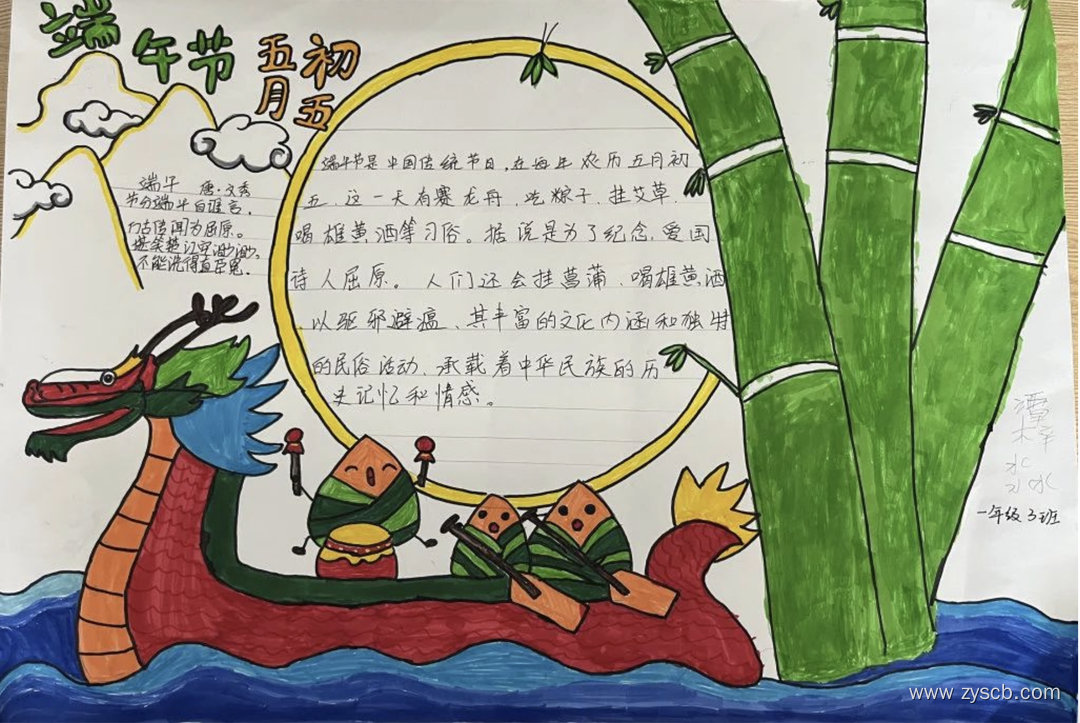 端午节
五月
初五
端午节是中国传统节日,在每年农历五月初
五、这一天有赛龙舟、吃粽子、挂艾草、
喝雄黄酒等习俗。据说是为了纪念爱国
诗人屈原。人们还会挂菖蒲、喝雄黄酒
以驱邪避瘟、其丰富的文化内涵和独特
的民俗活动、承载着中华民族的历
史记忆和情感。
端午 唐·文秀
节分端午自谁言,
万古传闻为屈原。
不能洗得直臣冤。
一年级3班
www.zyscb.com